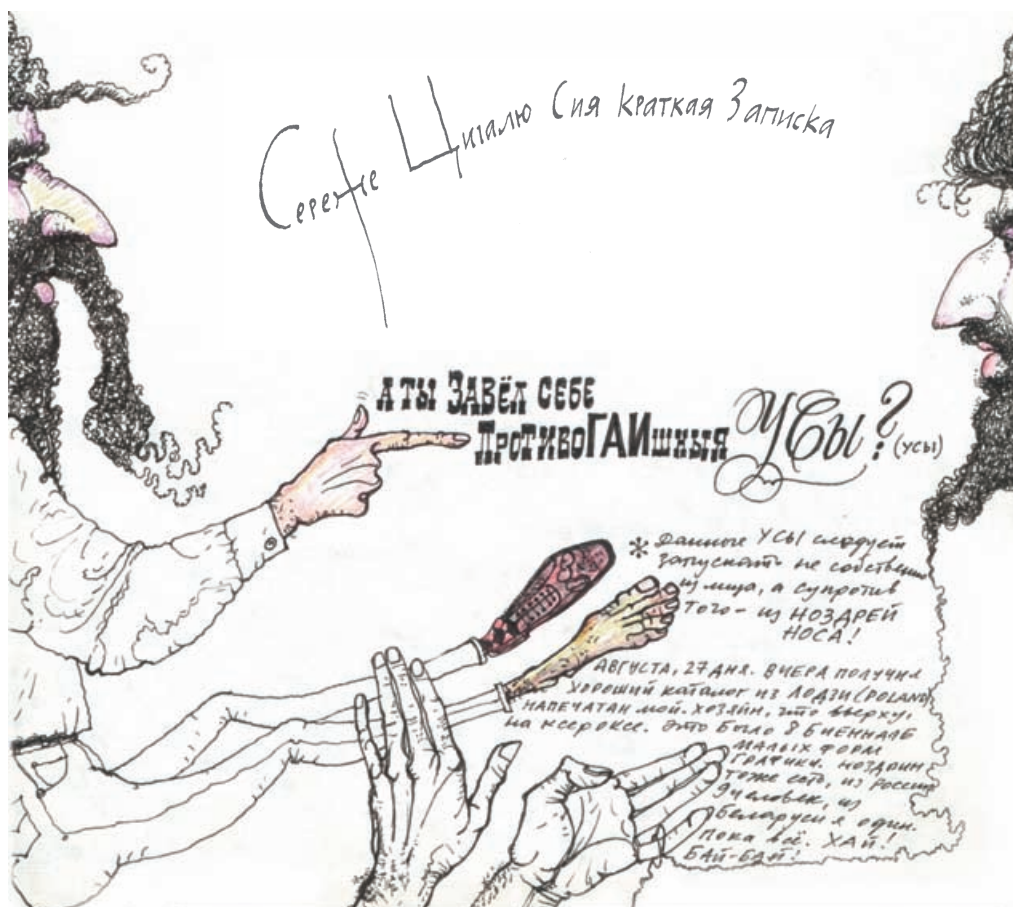 Сереже Цигалю Сия краткая Записка
А ТЫ ЗАВЁЛ СЕБЕ
ПРОТИВОГАИШНЫЯ УСЫ?
(УСЫ)
* Данные УСЫ следует
запускать не собственно
из лица, а супротив
того – из НОЗДРЕЙ
НОСА!
АВГУСТА, 27 ДНЯ. ВЧЕРА ПОЛУЧИЛ
ХОРОШИЙ КАТАЛОГ ИЗ ЛОДЗИ (POLAND)
НАПЕЧАТАН МОЙ. ХОЗЯИН, ЭТО ВВЕРХУ,
НА КСЕРОКСЕ. ЭТО БЫЛО 8 БИЕННАЛЕ
МАЛЫХ ФОРМ
ГРАФИКИ. НОЗДРИН
ТОЖЕ ЕСТЬ, ИЗ РОССИИ
9 ЧЕЛОВЕК, ИЗ
БЕЛАРУСИ Я ОДИН.
ПОКА ВСЁ. ХАЙ!
БАЙ-БАЙ!